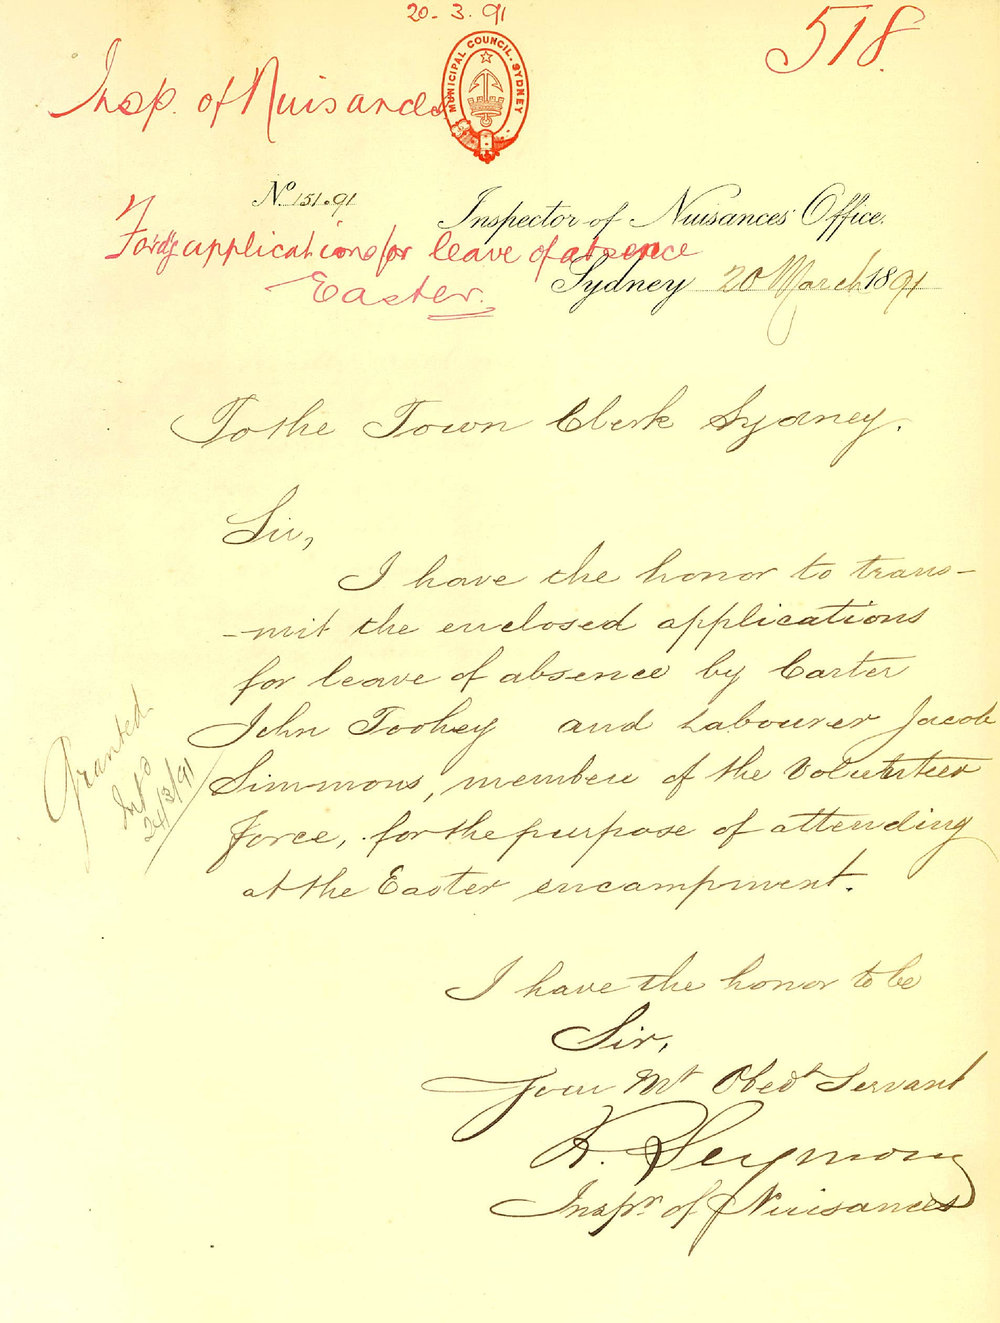 20. 3. 91
518.
MUNICIPAL COUNCIL. SYDNEY
Insp. of Nuisances
No 151.91
Inspector of Nuisances' Office.
Fordg applications for leave of absence
Easter.
Sydney 20 March 1891
To the Town Clerk Sydney.
Sir,
I have the honor to trans-
-mit the enclosed applications
for leave of absence by Carter
John Toohey and Labourer Jacob
Simmons, members of the Volunteer
Force, for the purpose of attending
at the Easter encampment.
Granted
24/3/91
I have the honor to be
Sir,
Your Mt Obedt Servant
R. Seymour
Inspr. of Nuisances